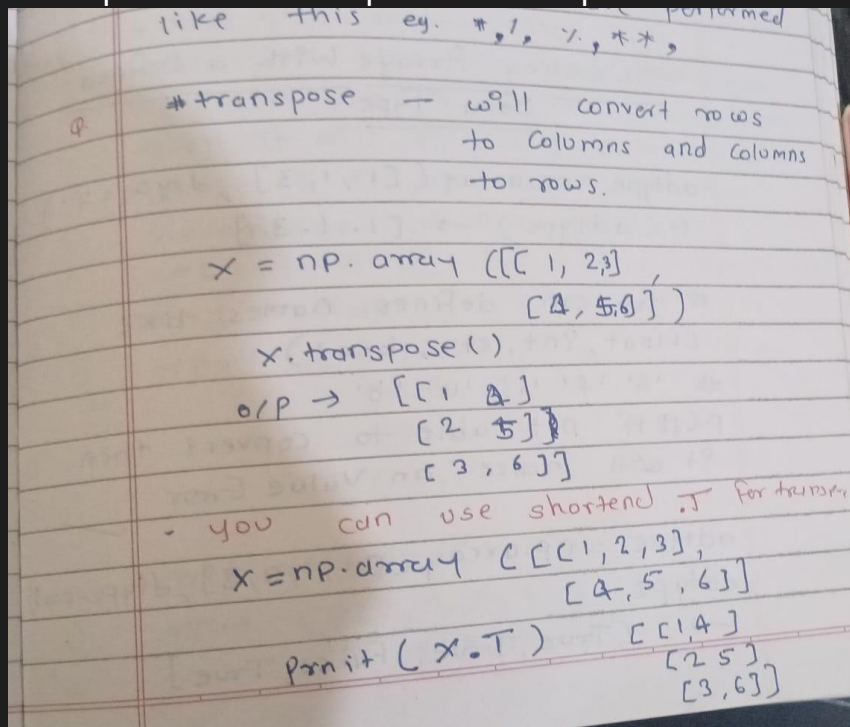 like this eg. *, /, %, **,
# transpose - will convert rows
Q.
to columns and columns
to rows.
x = np. array ([[ 1, 2,3],
[4, 5,6]])
x. transpose ()
o/p → [[ 1 4 ]
[ 2 5]]
[ 3, 6]]
- you can use shortend .T for
x = np. array ( [ [ 1, 2, 3],
[4, 5, 6]]
Prnit ( x.T ) [ [1,4 ]
[2 5]
[3,6]]